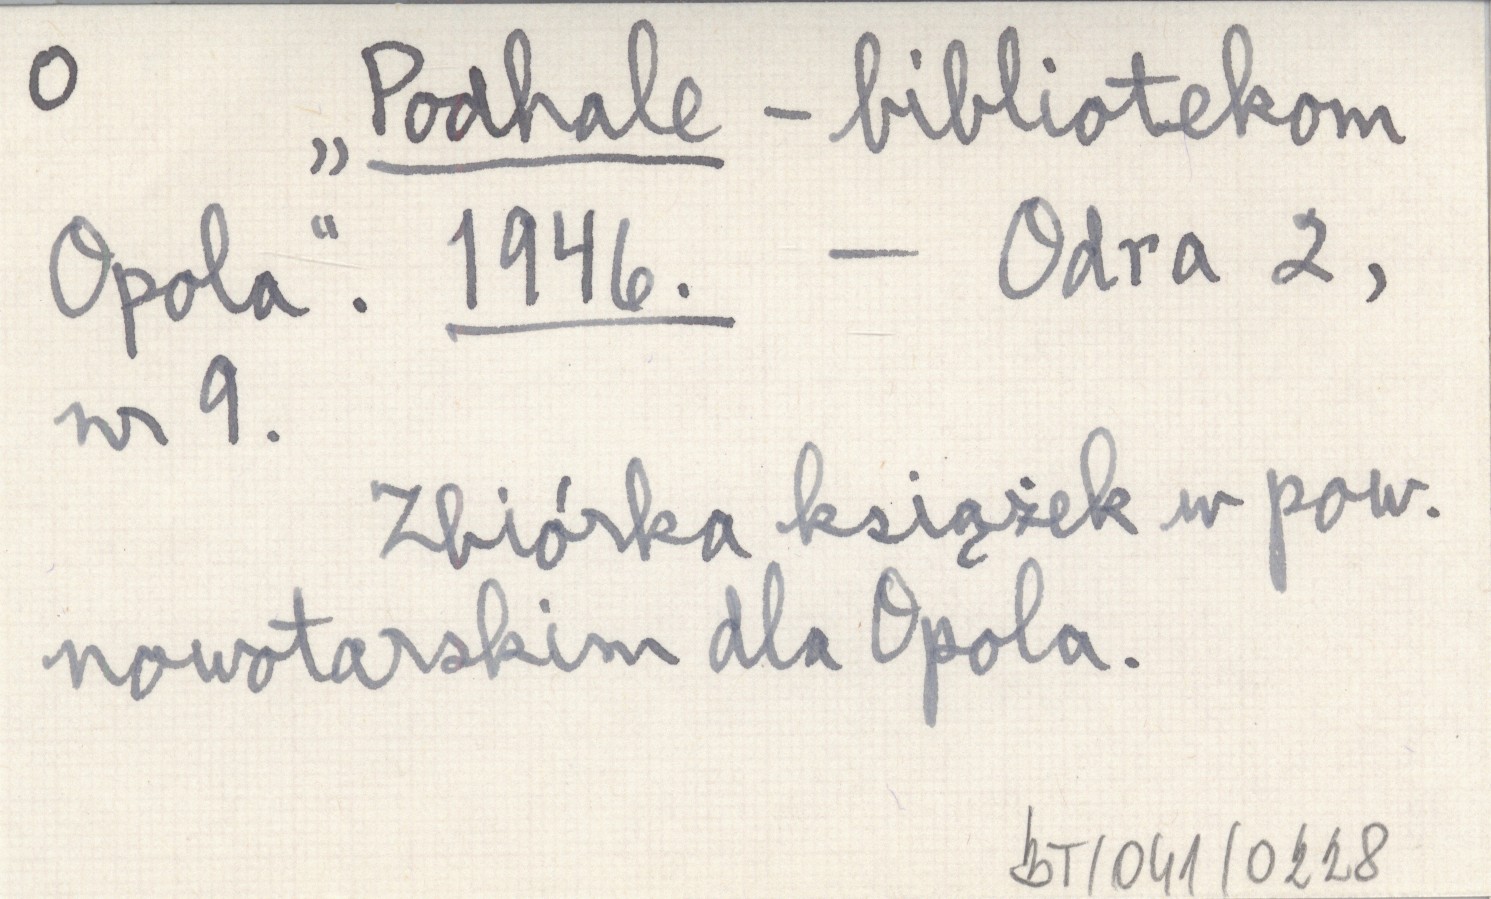 O
„Podhale – bibliotekom
Opola“. 1946. — Odra 2,
nr 9.
Zbiórka książek w pow.
nowotarskim dla Opola.
BT/041/0228